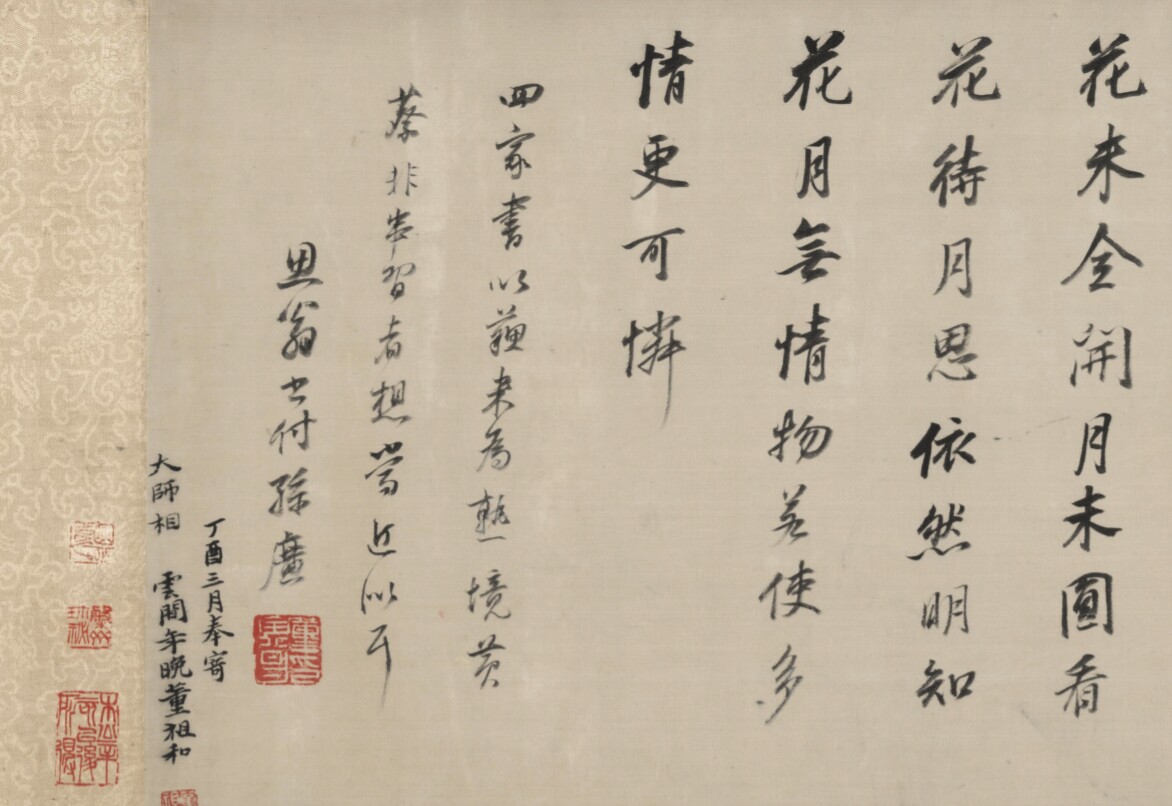 花未全開月未圓看
花待月思依然明知
花月無情物若使多
情更可憐
四家書以蘇米為熟境黃
蔡非串習者想當近似耳
思翁書付孫廣
丁酉三月奉寄
大師相 雲間年晚董祖和
董其昌印